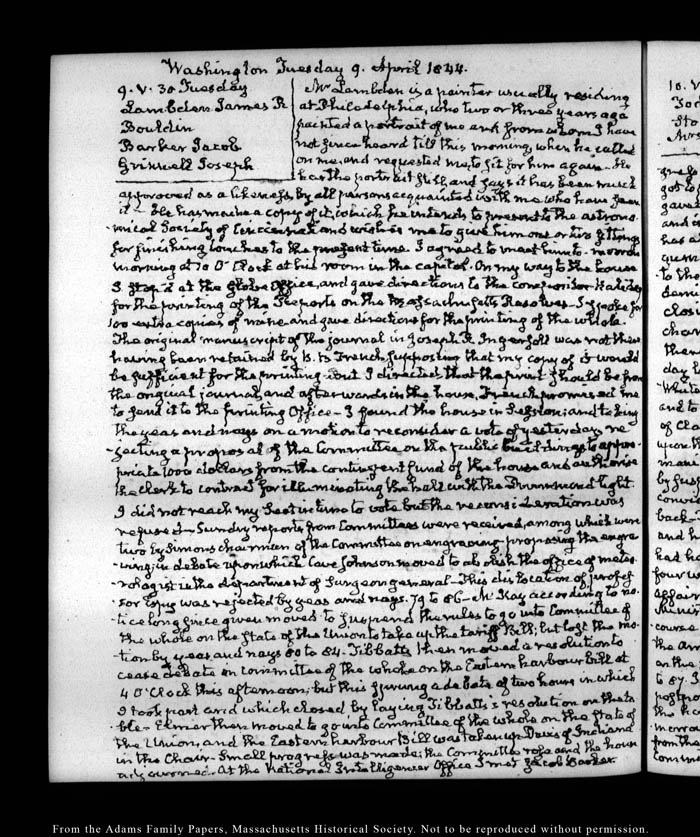 Washington Tuesday 9. April 1844.
9. V. 30 Tuesday
Lambdin James R
Bouldin
Barker Jacob
Grinnell Joseph
Mr Lambdin is a painter usually residing
at Philadelphia, who two or three years ago
painted a portrait of me and from whom I have
not since heard till this morning when he called
on me, and requested me to sit for him again. He
has the portrait still, and says it has been much
approved as a likeness by all persons acquainted with me who have seen
it — He has made a copy of it, which he intends to present to the astrono-
-mical Society of Cincinnati and wishes me to give him one or two sittings
for finishing touches to the present time. I agreed to meet him to-morrow
morning at 10 O'Clock at his room in the capitol. On my way to the house
I stop'd at the Globe Office, and gave directions to the compositor
for the printing of the Reports on the Massachusetts Resolves. I spoke for
100 extra copies of mine, and gave directions for the printing of the whole.
The original manuscript of the journal in Joseph R. Ingersoll was not there
having been retained by B. B. French supposing that my copy of it would
be sufficient for the printing: but I directed that the print should be from
the original journal, and afterwards in the house, French promised me
to send it to the printing Office — I found the house in Session; and taking
the yeas and nays on a motion to reconsider a vote of yesterday, re
-jecting a proposal of the Committee on the public buildings to appro-
priate 1000 dollars from the contingent fund of the house and authorise
the clerk to contract for illuminating the hall with the Drummond light.
I did not reach my seat in time to vote but the reconsideration was
refused — Sundry reports from Committees were received, among which were
two by Simons chairman of the Committee on engraving, proposing the engra
-ving in debate upon which Cave Johnson moved to abolish the office of meteo
-rologist in the department of Surgeon general — This dislocation of profes
-sor Espy was rejected by yeas and nays. 79 to 86 — McKay according to no-
-tice long since given moved to suspend the rules to go into Committee of
the whole on the state of the Union to take up the tariff Bill; but lost the mo-
-tion by yeas and nays 80 to 84. Tibbatts then moved a resolution to
cease debate in committee of the whole on the Eastern harbour bill at
4 O'Clock this afternoon; but this sprung a debate of two hours in which
I took part and which closed by laying Tibbatts's resolution on the ta
-ble — Elmer then moved to go into Committee of the whole on the state of
the Union, and the Eastern harbour Bill was taken up Davis of Indiana
in the Chair. Small progress was made; the Committee rose and the house
adjourned. At the National Intelligencer Office I met Jacob Barker.
From the Adams Family Papers, Massachusetts Historical Society. Not to be reproduced without permission.